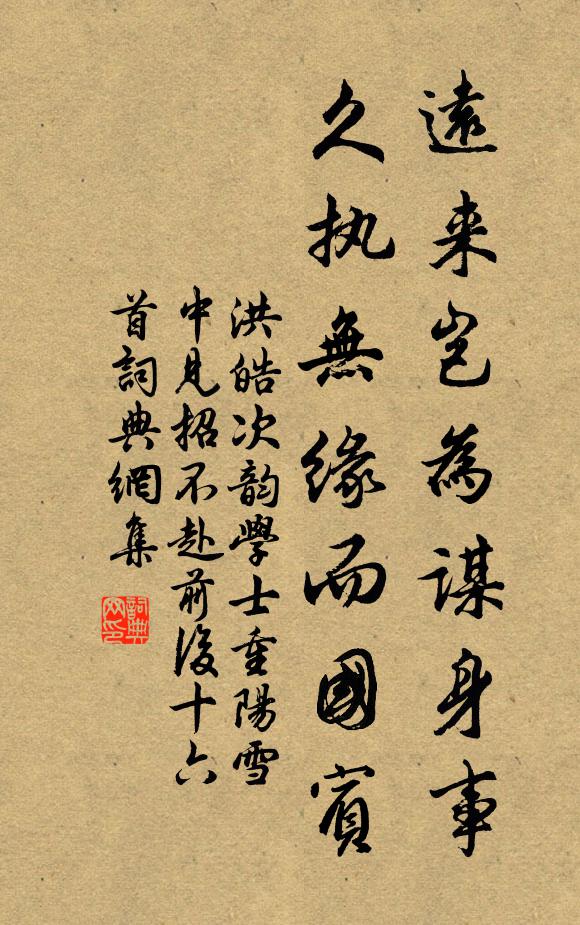 遠来豈為謀身事
久执無緣而國賓
洪皓次韵學士重陽雪
中見招不赴前後十六
首詞典網集
詞典
网印